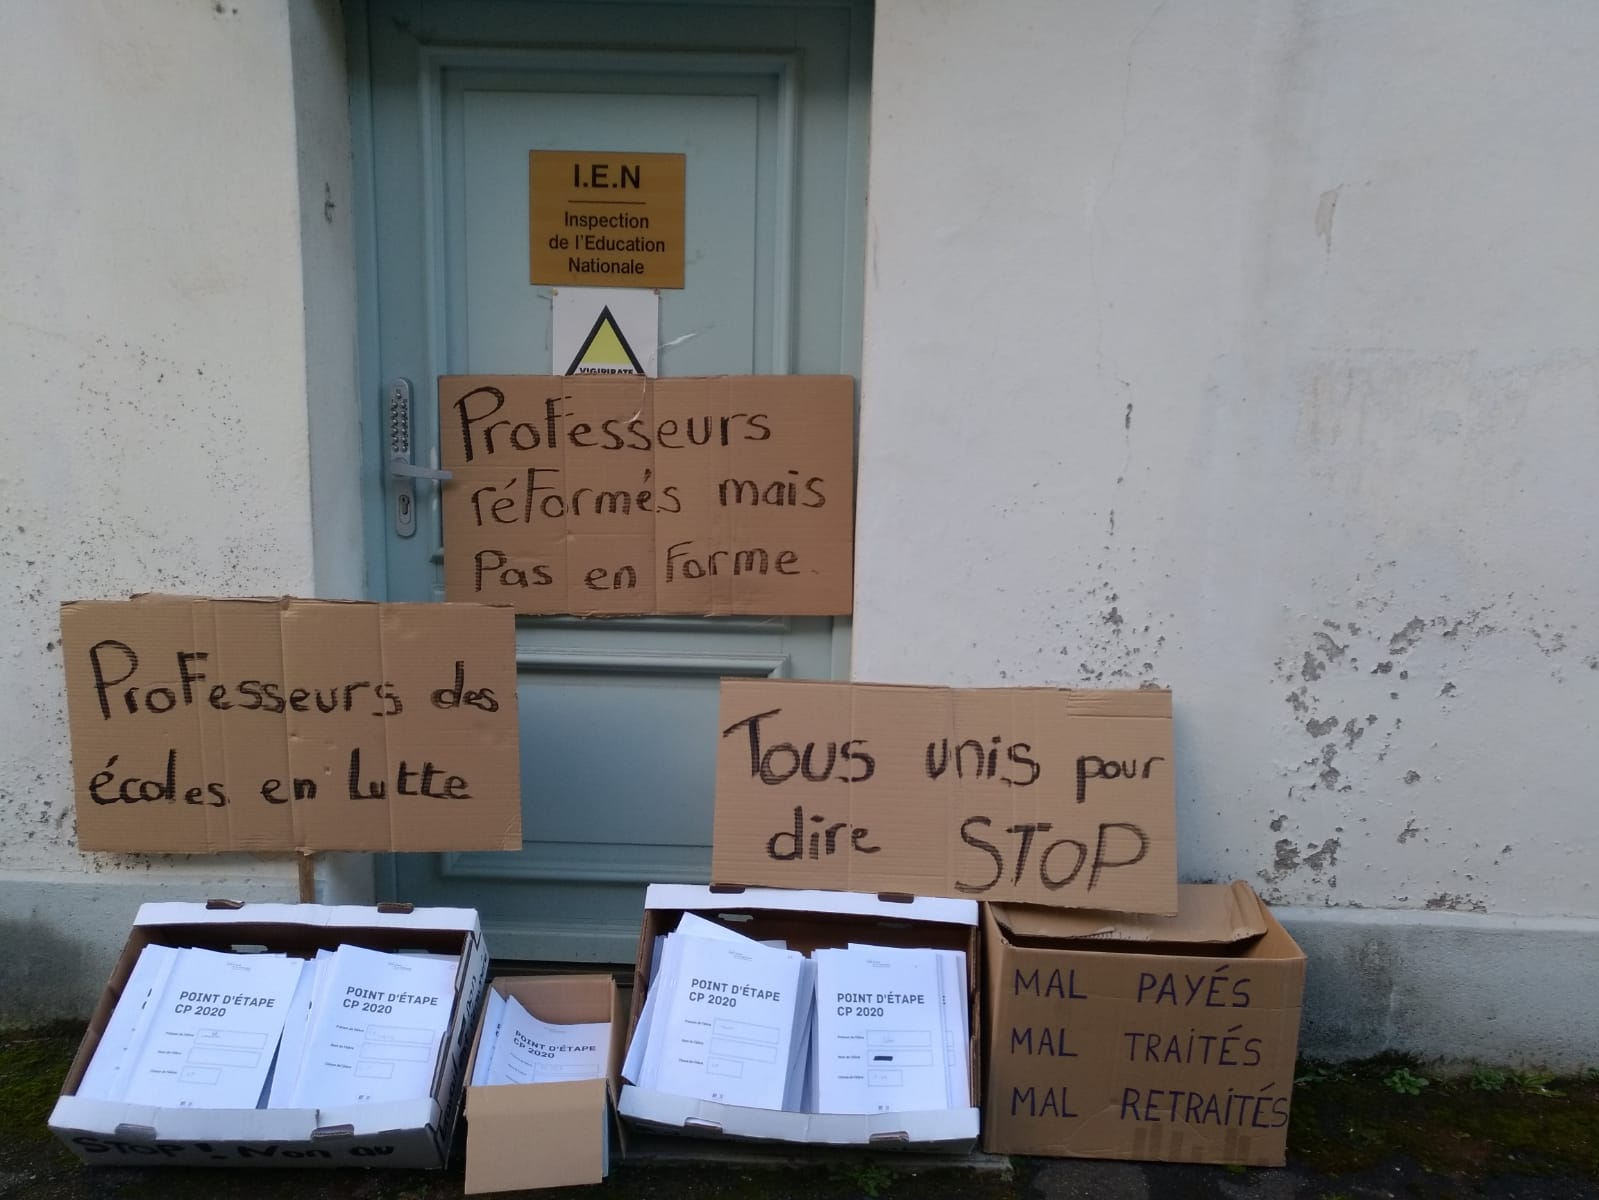 I.E.N
Inspection
de l'Education
Nationale
VIGIPIRATE
Professeurs
réformés mais
Pas en forme.
Professeurs des
écoles en Lutte
Tous unis pour
dire STOP
POINT D'ÉTAPE
CP 2020
POINT D'ÉTAPE
CP 2020
POINT D'ÉTAPE
CP 2020
POINT D'ÉTAPE
CP 2020
POINT D'ÉTAPE
CP 2020
MAL PAYÉS
MAL TRAITÉS
MAL RETRAITÉS
STOP ! Non au